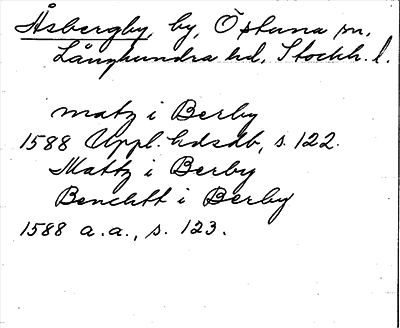 Åsbergby, by, Östuna sn,
Långhundra hd, Stockh. l.
matz i Berby
1588 Uppl. hdsdb, s. 122.
Mattz i Berby
Benchtt i Berby
1588 a.a., s. 123.